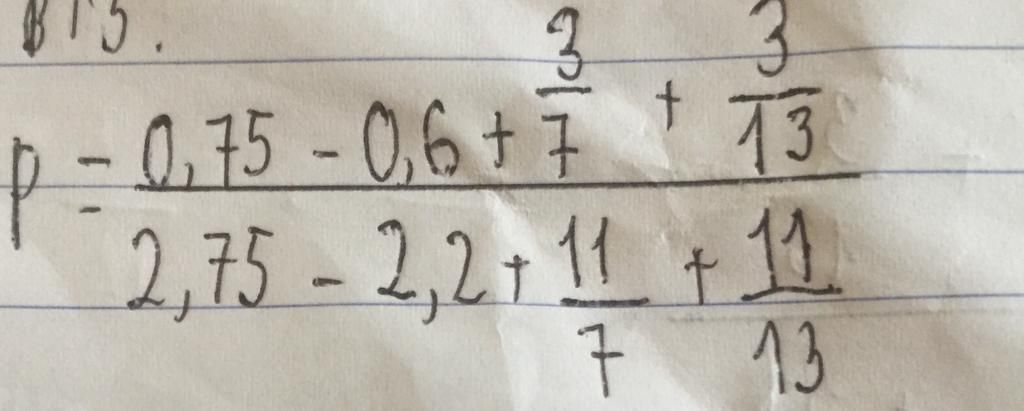 P = \frac{0,75 - 0,6 + \frac{3}{7} + \frac{3}{13}}{2,75 - 2,2 + \frac{11}{7} + \frac{11}{13}}